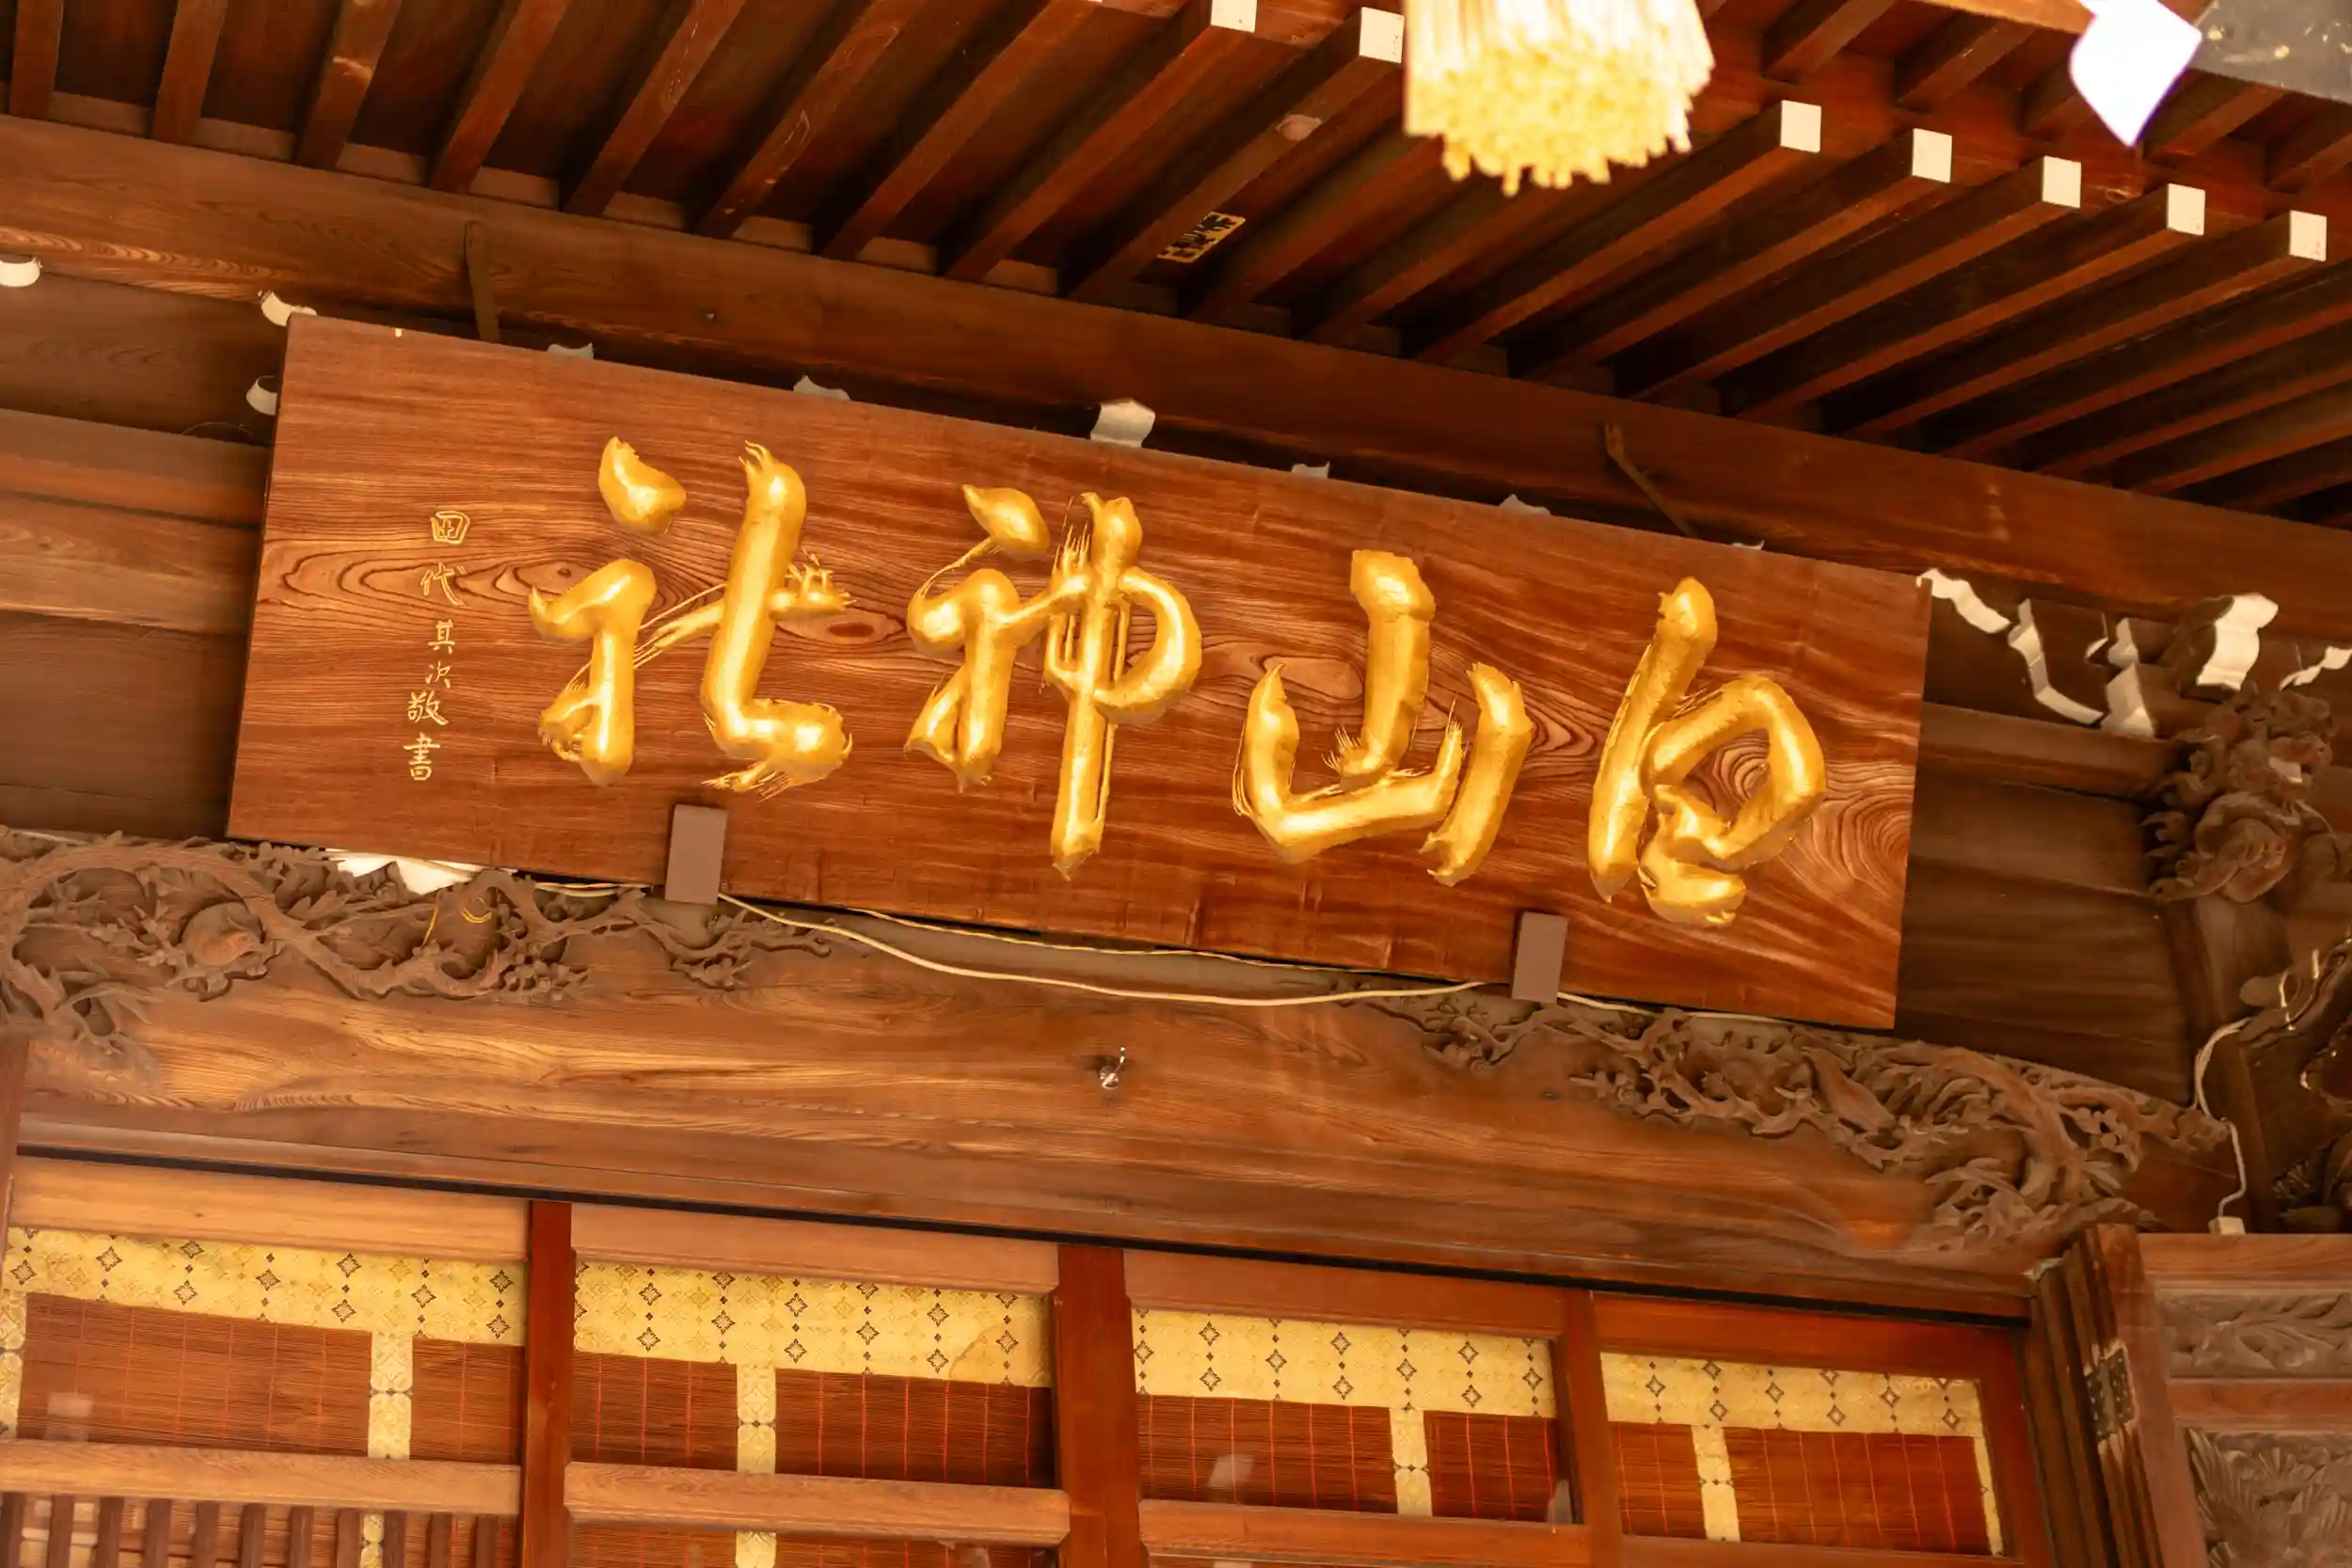 白山神社
田代其次敬書